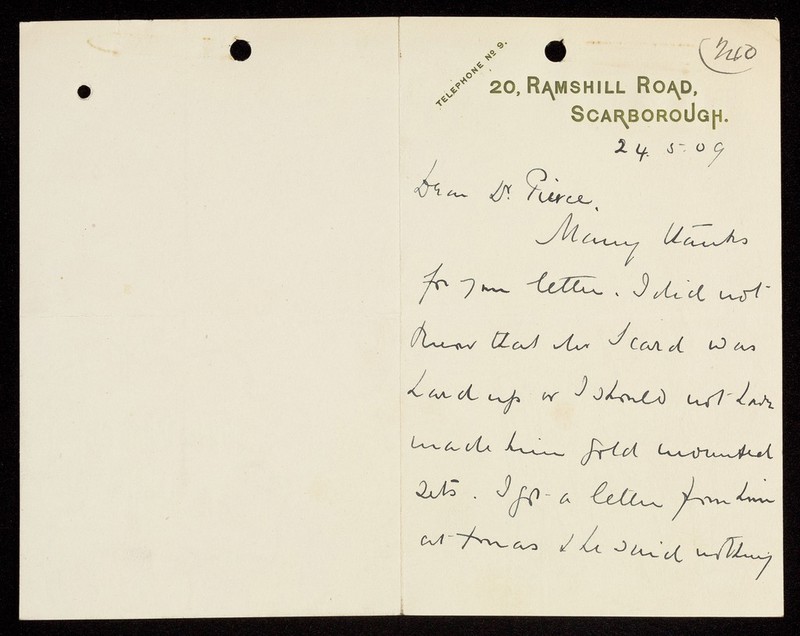 240
TELEPHONE No 9.
20, RAMSHILL ROAD,
SCARBOROUGH.
24. 5. 09
Dear Dr. Pierce,
Many thanks
for your letter. I did not
know that Mr Scard was
hard up or I should not have
made him gold mounted
sets. I got a letter from him
at Xmas & he said nothing